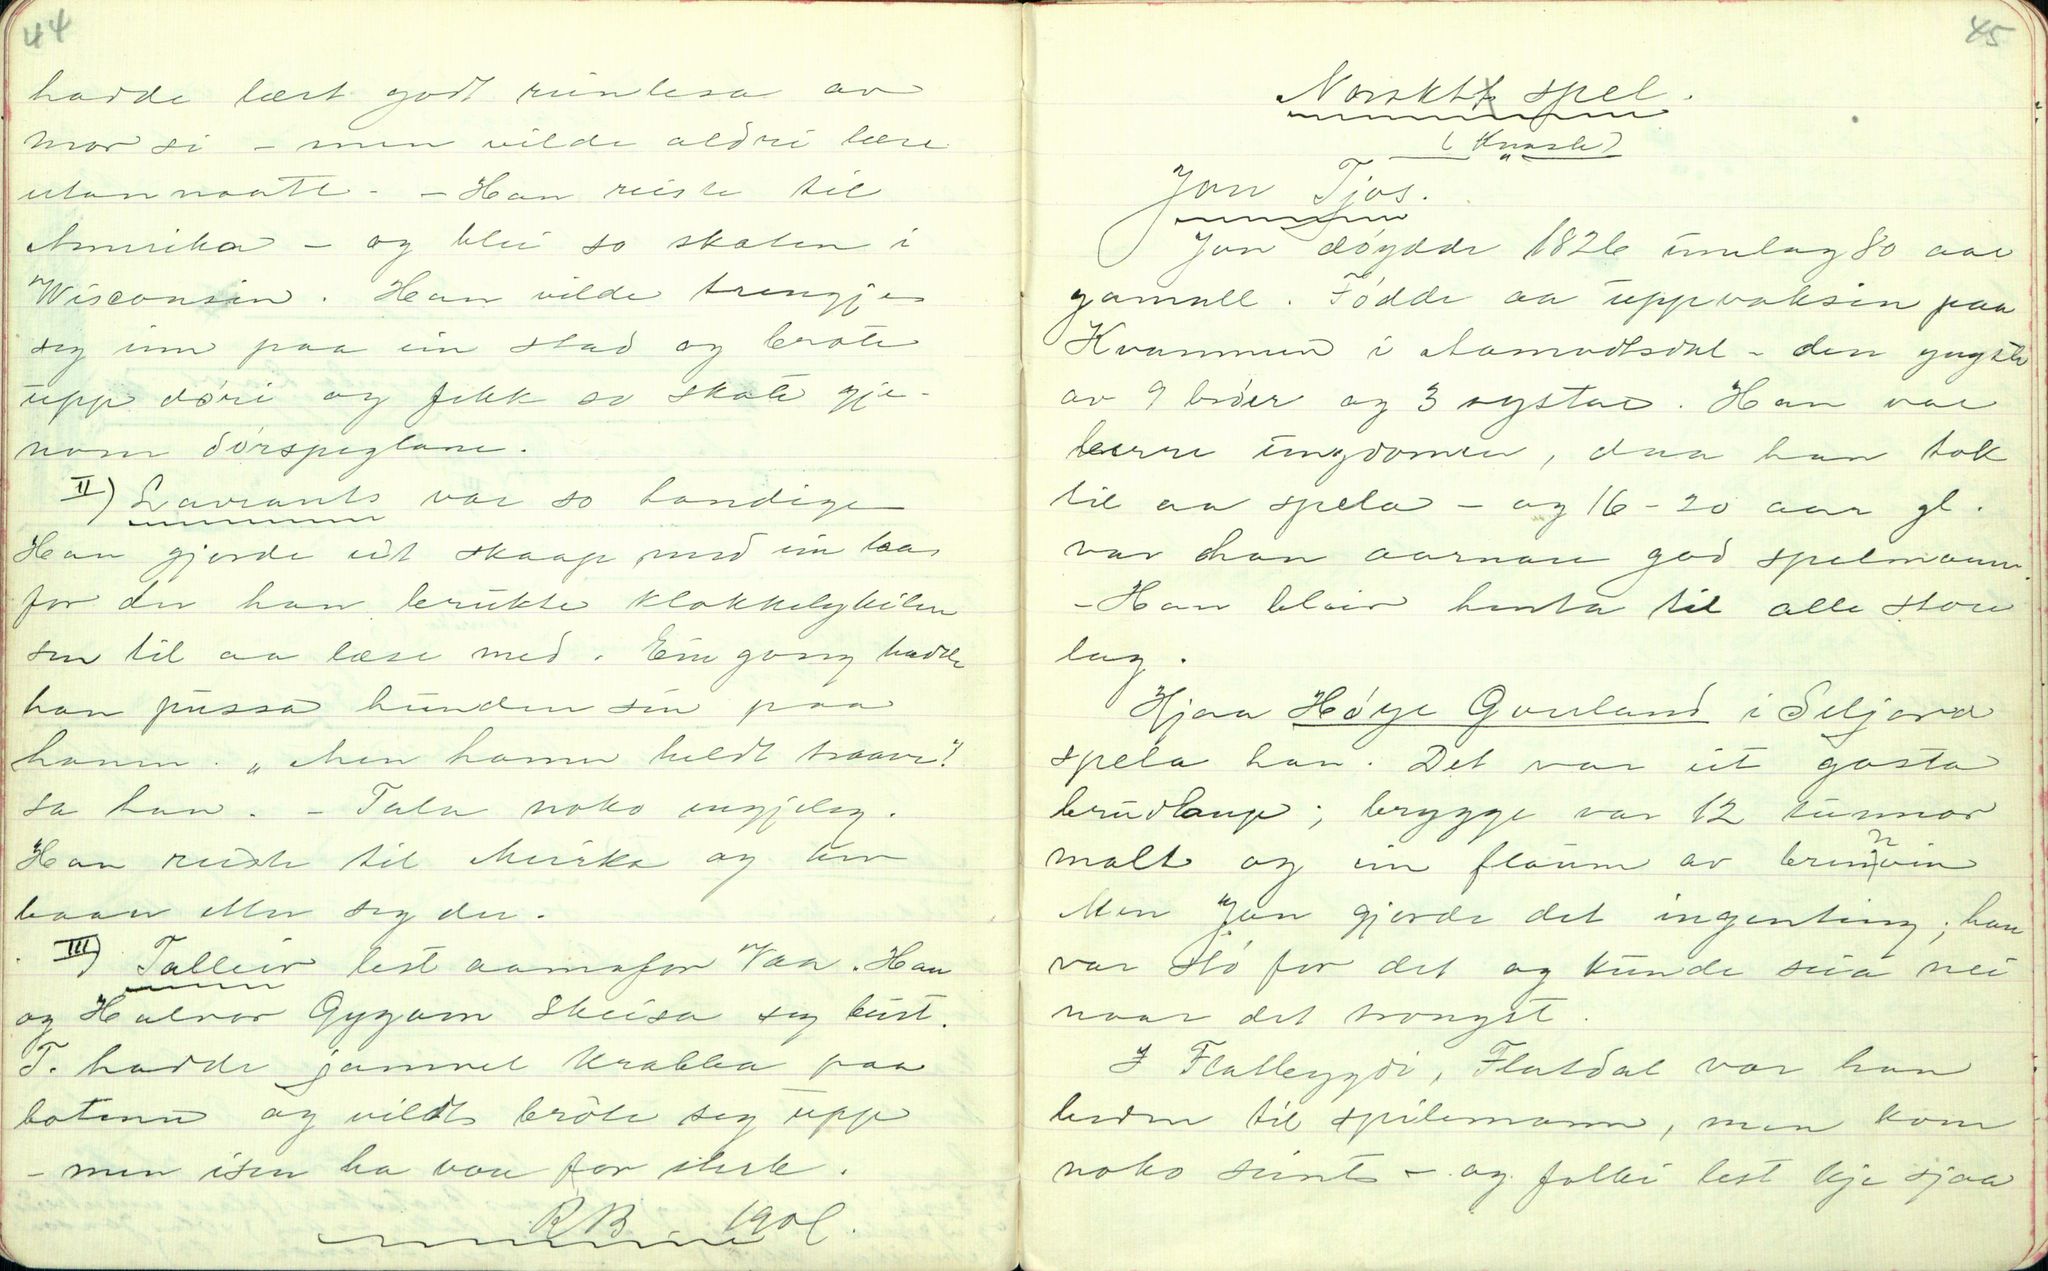 44
hadde lært godt rúnlesa av
mor si – men vilde aldri lære
utan naate. – Han reiste til
Amerika – og blei so skoten i
Wisconsin. Han vilde trengje
seg inn paa ein stad og brote
upp døri og fekk so skote gje-
nom dørspeglane.
II) Lavrants var so handige
Han gjorde eit skaap med ein laas
for der han brukte klokkelykilen
sin til aa læse med. Ein gong hadde
han pussa hunden sin paa
honom. „Men honn heldt traave"!
sa han. – Tala noko ugjeleg.
Han reiste til Merika og
baar etter seg der.
III) Talleiv lest aamofor Vaa. Han
og Halvor Gygarn Skeisa seg burt.
T. hadde jamvel krabba paa
botnen og vildt brote seg upp
– men isen ha vore for sterk.
RB – 190
45
Norskt spel.
( Knaste)
Jon Tjos.
Jon døydde 1826 umlag 80 aar
gamall. Fødde aa uppvaksin paa
Kvammen i Aamodtsdal – den yngste
av 9 brør og 3 systar. Han var
berre ungdomen, daa han tok
til aa spela – og 16-20 aar gl.
var han aarnare god spelmann.
– Han bleiv henta til alle store
lag.
Hjaa Høye Gonland i Seljord
spela han. Det var eit gasta
brudlaup; brygge var 12 tunnor
malt og ein flaum av brennvin
Men Jon gjorde det ingenting; han
var stø for det og kunde seia nei
naar det trongst.
I Flatbygdi, Flatdal var han
beden til spilemann, men kom
noko seint – og folki lest kje sjaa